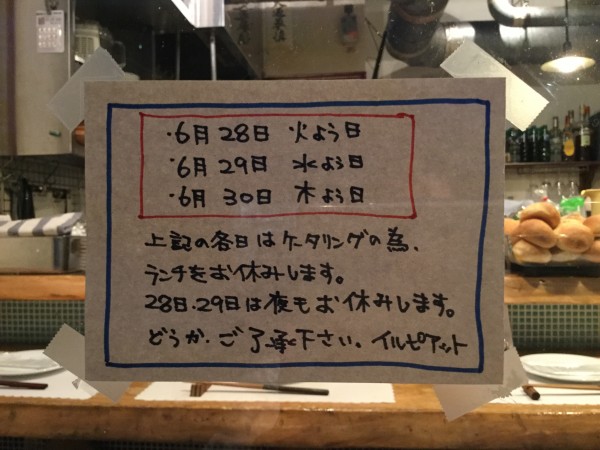 ・6月28日 火よう日
・6月29日 水よう日
・6月30日 木よう日
上記の各日はケータリングの為、
ランチをお休みします。
28日・29日は夜もお休みします。
どうか・ご了承下さい。イルピアット